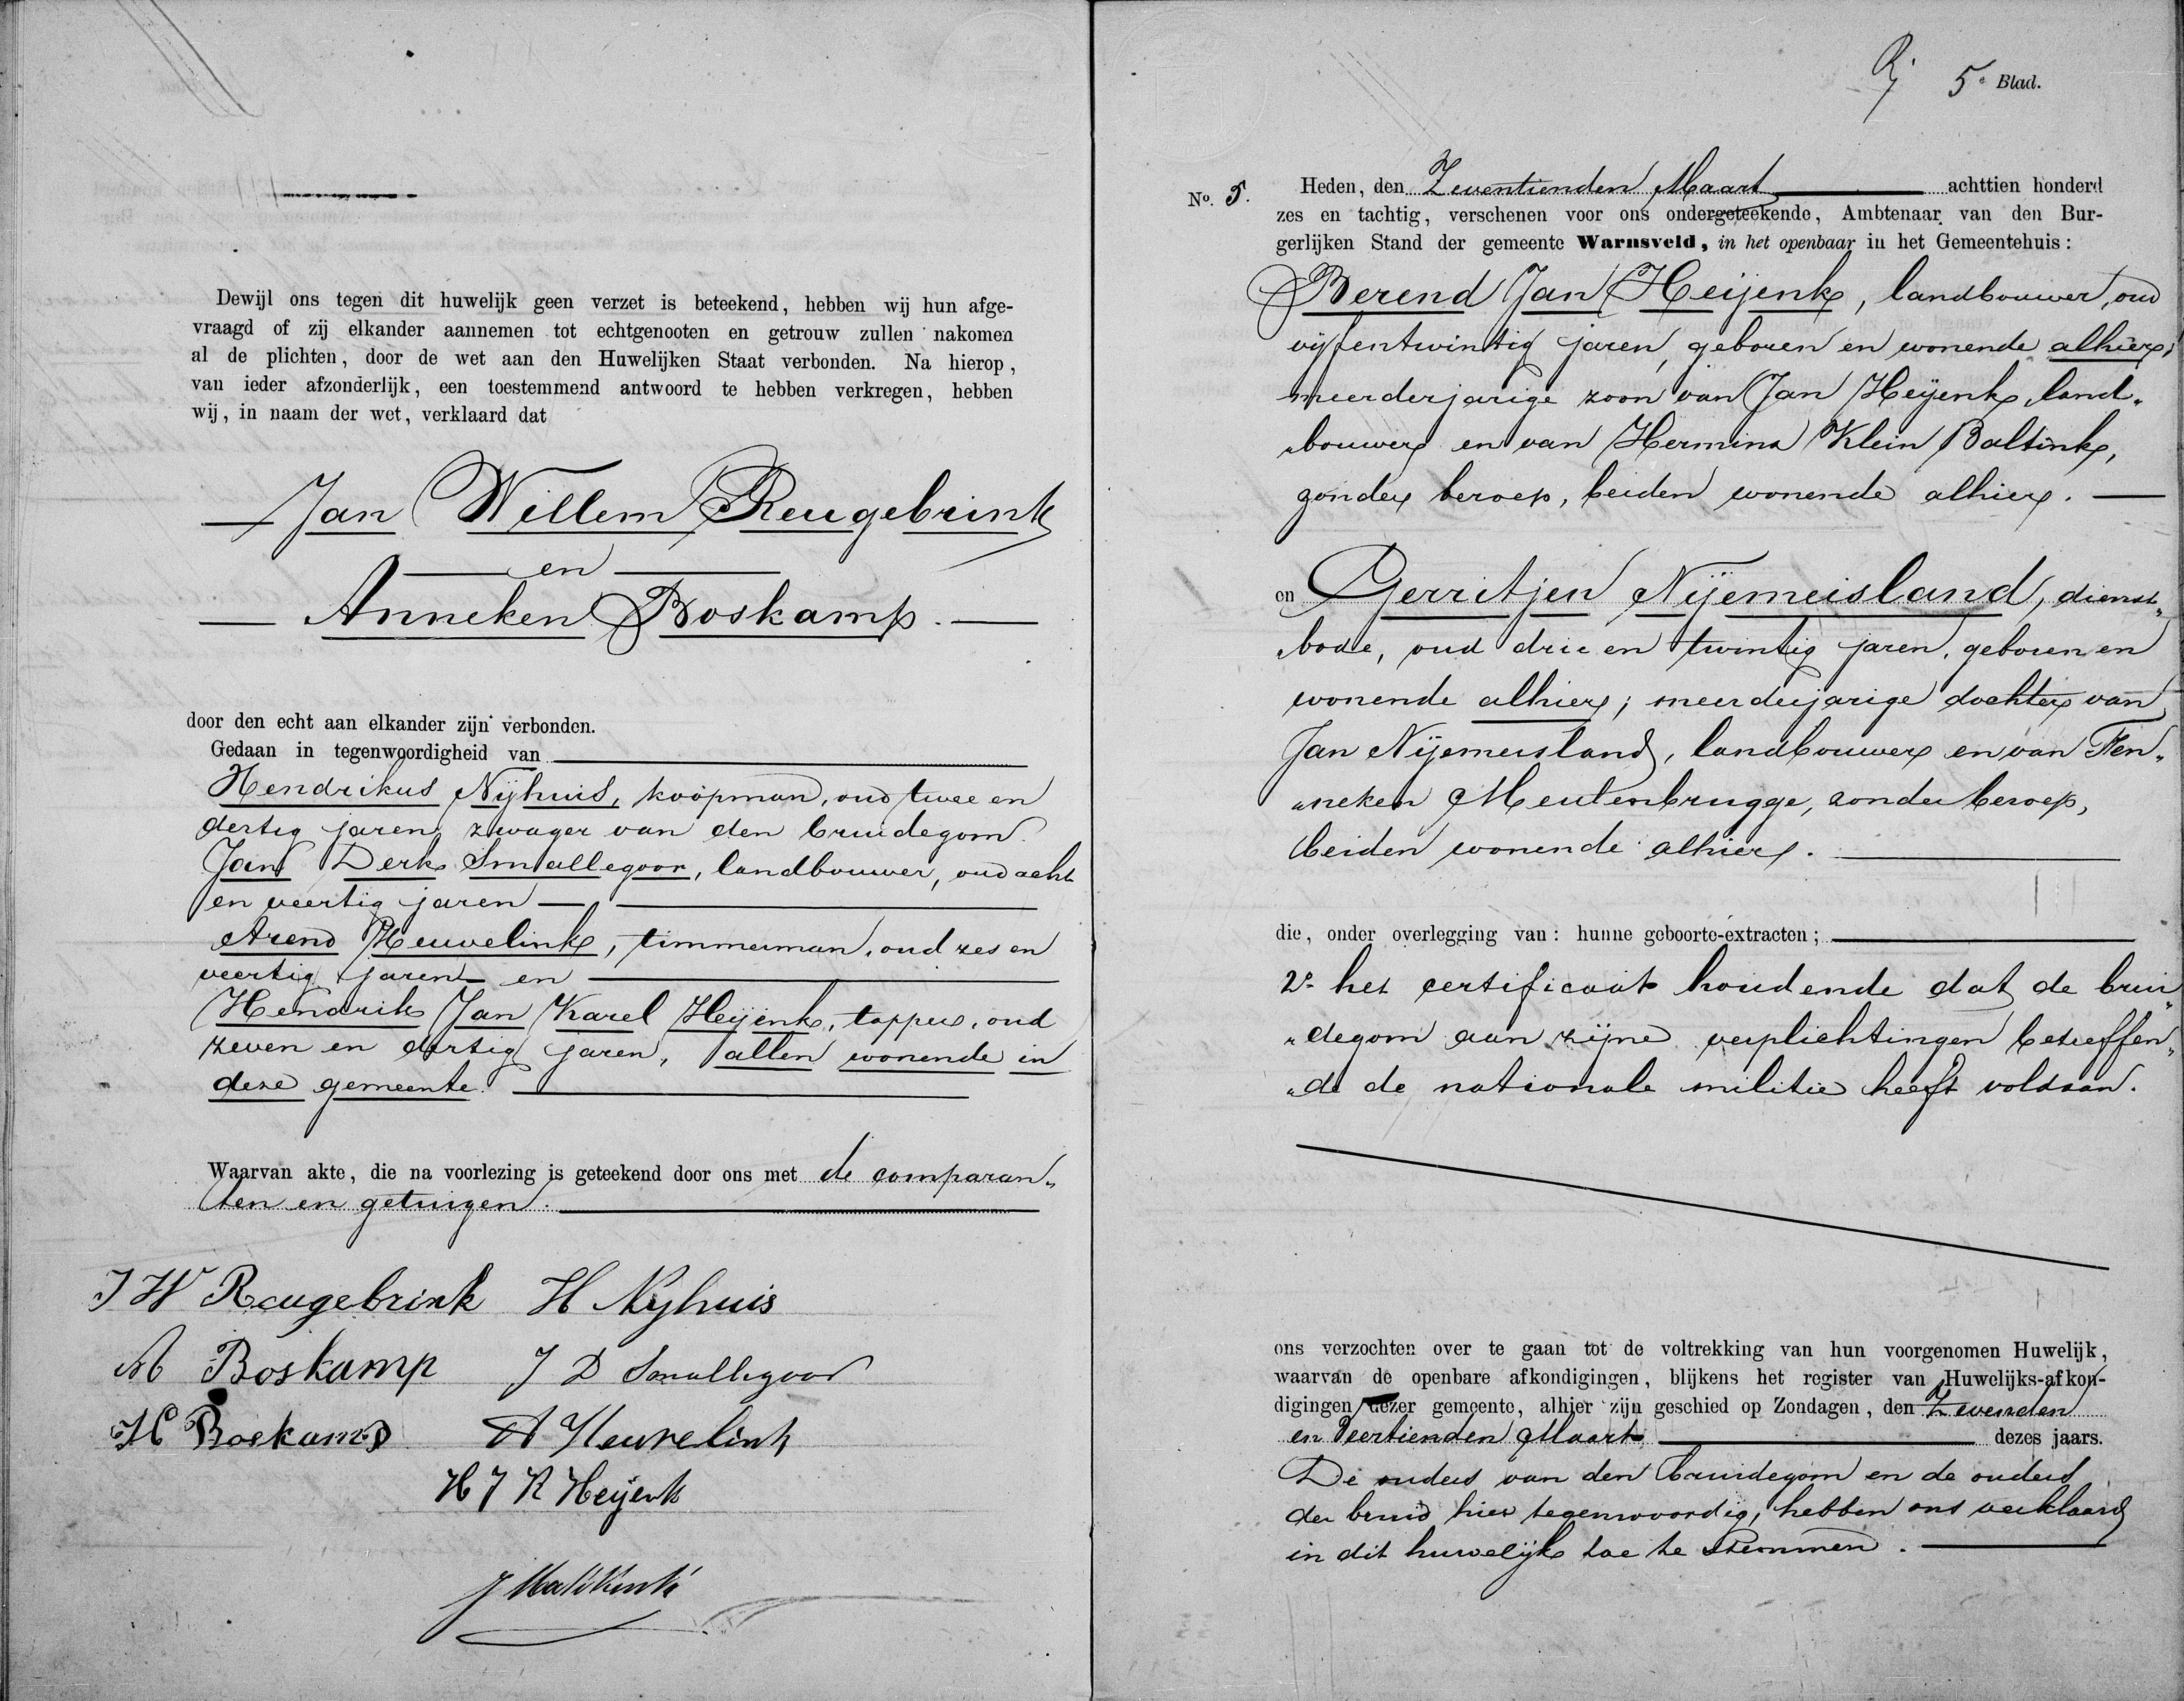 Dewijl ons tegen dit huwelijk geen verzet is beteekend, hebben wij hun afge-
vraagd of zij elkander aannemen tot echtgenooten en getrouw zullen nakomen
al de plichten, door de wet aan den Huwelijken Staat verbonden. Na hierop,
van ieder afzonderlijk, een toestemmend antwoord te hebben verkregen, hebben
wij, in naam der wet, verklaard dat
Jan Willem Reugebrink
en
Anneken Boskamp.
door den echt aan elkander zijn verbonden.
Gedaan in tegenwoordigheid van
Hendrikus Nijhuis, koopman, oud twee en
dertig jaren, zwager van den bruidegom
Jan Derk Smallegoor, landbouwer, oud acht
en veertig jaren
Arend Heuvelink, timmerman, oud zes en
veertig jaren en
Hendrik Jan Karel Heijenk, tapper, oud
zeven en dertig jaren, allen wonende in
deze gemeente.
Waarvan akte, die na voorlezing is geteekend door ons met de comparan„
ten en getuigen.
J W Reugebrink H Nyhuis
A Boskamp J D Smallegoor
H Boskamp A Heuvelink
H J K Heijenk
5e Blad.
No. 5. Heden, den Zeventienden Maart achttien honderd
zes en tachtig, verschenen voor ons ondergeteekende, Ambtenaar van den Bur-
gerlijken Stand der gemeente Warnsveld, in het openbaar in het Gemeentehuis:
Berend Jan Heijenk, landbouwer, oud
vijfentwintig jaren, geboren en wonende alhier,
meerderjarige zoon van Jan Heijenk, land„
„bouwer en van Hermina Klein Baltink,
zonder beroep, beiden wonende alhier.
en Gerritjen Nijemeisland, dienst„
„bode, oud drie en twintig jaren, geboren en
wonende alhier; meerderjarige dochter van
Jan Nijemeisland, landbouwer en van Fen„
„neken Meulenbrugge, zonder beroep,
beiden wonende alhier.
die, onder overlegging van: hunne geboorte-extracten;
2o. het certificaat houdende dat de brui„
„degom aan zijne verplichtingen betreffen„
„de de nationale militie heeft voldaan.
ons verzochten over te gaan tot de voltrekking van hun voorgenomen Huwelijk,
waarvan de openbare afkondigingen, blijkens het register van Huwelijks-afkon-
digingen dezer gemeente, alhier zijn geschied op Zondagen, den Zevenden
en Veertienden Maart dezes jaars.
De ouders van den bruidegom en de ouders
der bruid hier tegenwoordig, hebben ons verklaard
in dit huwelijk toe te stemmen.